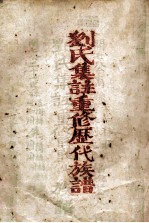 劉氏集註重修歷代族譜